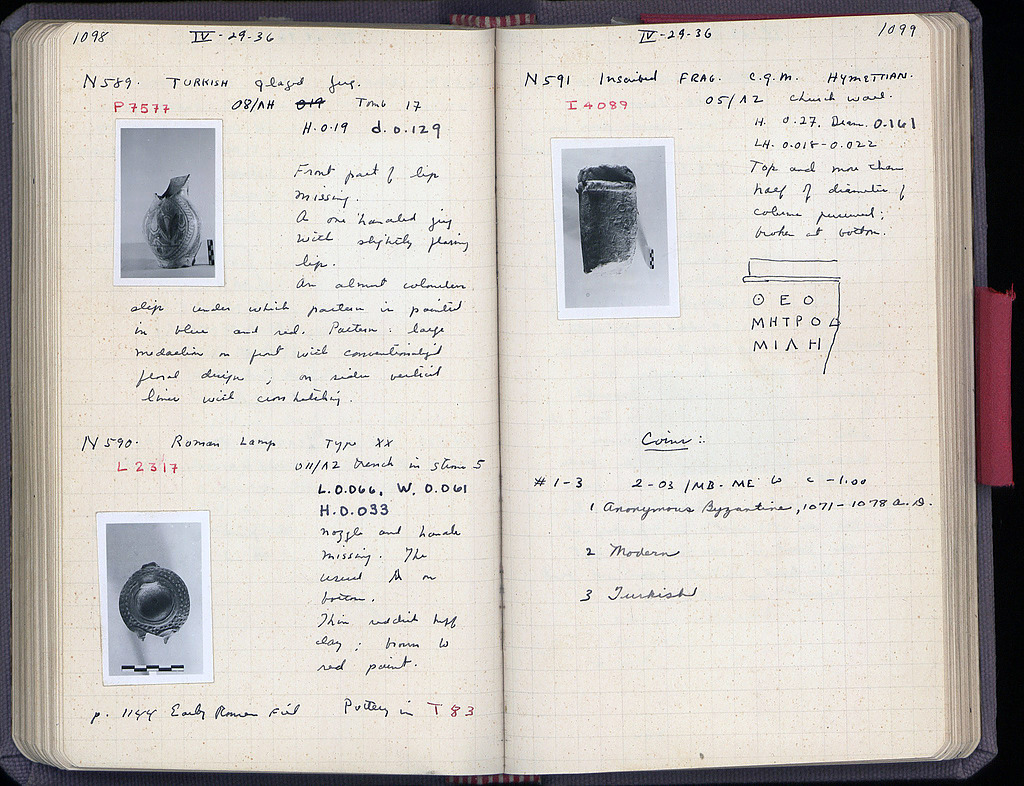 1098 IV-29-36
N589. TURKISH glazed Jug.
P7577 08/ΛΗ 019 Tomb 17
H. 0.19 d. 0.129
Front part of lip
missing.
A one handled jug
with slightly flaring
lip.
An almost colourless
slip under which pattern is painted
in blue and red. Pattern: large
medallion on front with conventionalized
floral design; on sides vertical
lines with cross hatching.
N590. Roman Lamp Type XX
L2317 011/Λ2 trench in stereo 5
L. 0.066, W. 0.061
H. 0.033
Nozzle and handle
missing. The
usual A on
bottom.
Thin reddish buff
clay; brown to
red paint.
p. 1144 Early Roman Fill Pottery in T83
IV-29-36 1099
N591 Inscribed FRAG. C.G.M. HYMETTIAN.
I4089 05/Λ2 church wall.
H. 0.27, Diam. 0.161
LH. 0.018-0.022
Top and more than
half of diameter of
column preserved;
broken at bottom.
ΘΕΟ
ΜΗΤΡΟΔ
ΜΙΛΗ
Coins:
#1-3 2-03/MB-ME to c -1.00
1 Anonymous Byzantine, 1071-1078 A.D.
2 Modern
3 Turkish